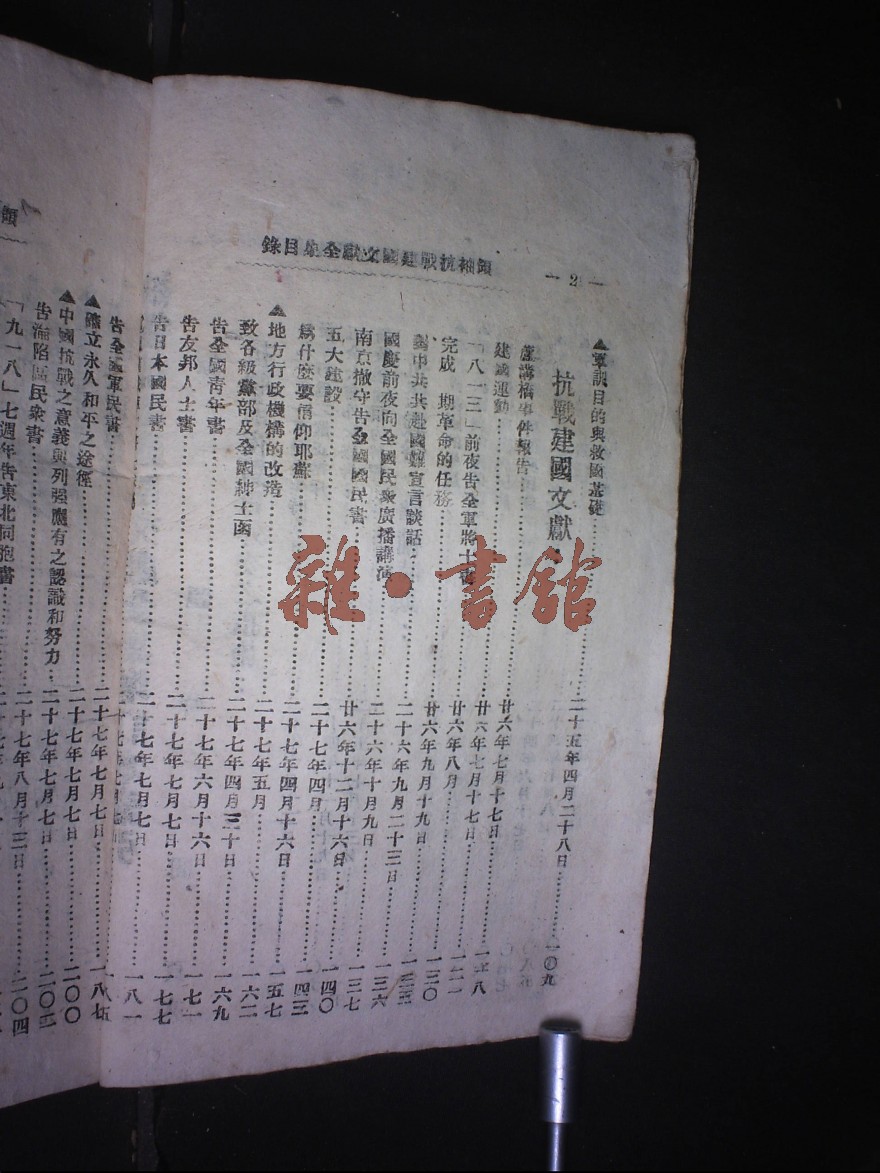 領袖抗戰建國文獻全集目錄
— 2 —
▲軍訓目的與救國基礎…………二十五年四月二十八日…………一〇九
抗戰建國文獻
蘆溝橋事件報告…………廿六年七月十七日
建國運動…………廿六年七月十七日…………一一八
「八一三」前夜告全軍將士書…………廿六年八月
完成 期革命的任務…………廿六年九月十九日…………一三〇
對中共共赴國難宣言談話…………二十六年九月二十三日
國慶前夜向全國民衆廣播講演…………二十六年十月九日…………一三六
南京撤守告全國國民書…………廿六年十二月十六日…………一三七
五大建設…………二十七年四月…………一四〇
爲什麽要信仰耶蘇…………二十七年四月十六日…………一四三
▲地方行政機構的改造…………二十七年五月…………一五七
致各級黨部及全國紳士函…………二十七年四月三十日…………一六二
告全國青年書…………二十七年六月十六日…………一六九
告友邦人士書…………二十七年七月七日…………一七一
告日本國民書…………二十七年七月七日…………一七七
一八一
告全國軍民書…………二十七年七月七日
▲確立永久和平之途徑…………二十七年七月七日…………一八七
▲中國抗戰之意義與列强應有之認識和努力…………二十七年七月七日…………二〇〇
告淪陷區民衆書…………二十七年八月十三日…………二〇三
「九一八」七週年告東北同胞書…………二十七年九月…………二〇四
雜·書館